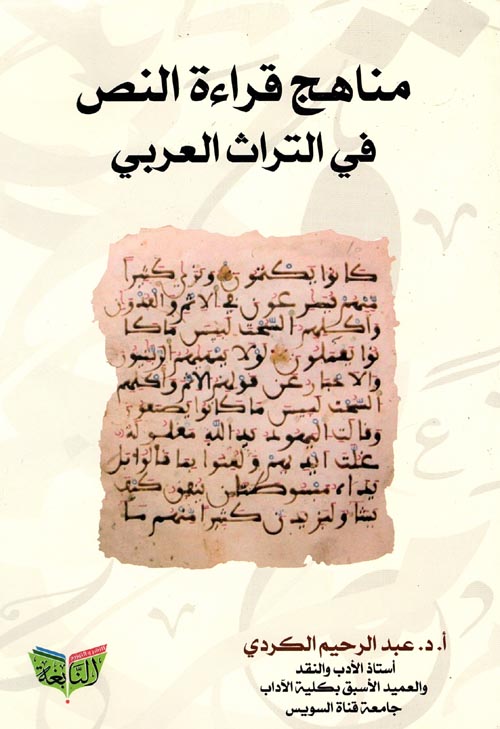 مناهج قراءة النص
في التراث العربي
كانوا يكتمون وترى كثيرا
منهم يسرعون في الاثم والعدون
وأكلهم السحت لبيس ما كا
نوا يعملون لولا ينهيهم الربنيون
والاحبار عن قولهم الاثم وأكلهم
السحت لبيس ما كانوا يصنعون
وقالت اليهود يد الله مغلولة
غلت ايديهم ولعنوا بما قالوا بل
يداه مبسوطتان ينفق كيف
يشا وليزيدن كثيرا منهم ما
أ. د. عبد الرحيم الكردي
أستاذ الأدب والنقد
والعميد الأسبق بكلية الآداب
جامعة قناة السويس
النابغة